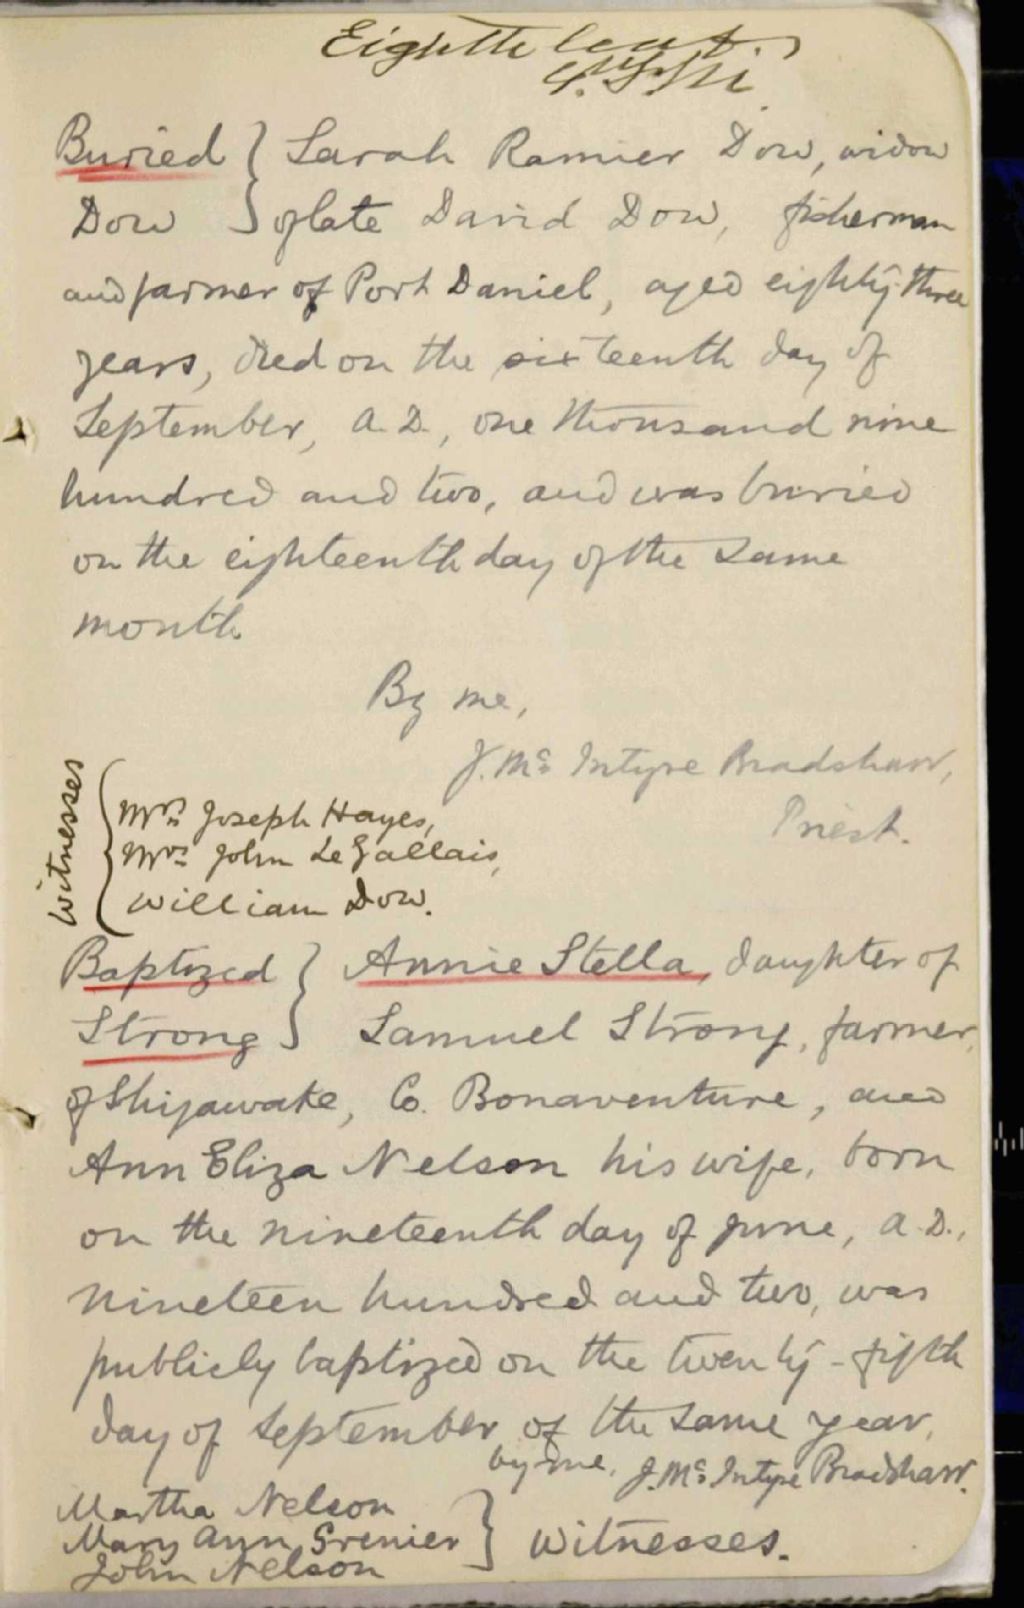 Eighth leaf.
Buried } Sarah Ramier Dow, widow
Dow } of late David Dow, fisherman
and farmer of Port Daniel, aged eighty-three
years, died on the sixteenth day of
September, A.D., one thousand nine
hundred and two, and was buried
on the eighteenth day of the same
month.
By me,
J. Mc Intyre Bradshaw,
Priest.
Witnesses
Mrs Joseph Hayes,
Mrs John LeGallais,
William Dow.
Baptized } Annie Stella, daughter of
Strong } Samuel Strong, farmer,
of Shigawake, Co. Bonaventure, and
Ann Eliza Nelson his wife, born
on the nineteenth day of June, A.D.,
nineteen hundred and two, was
publicly baptized on the twenty-fifth
day of September of the same year,
by me, J. Mc Intyre Bradshaw.
Martha Nelson
Mary Ann Grenier } Witnesses.
John Nelson